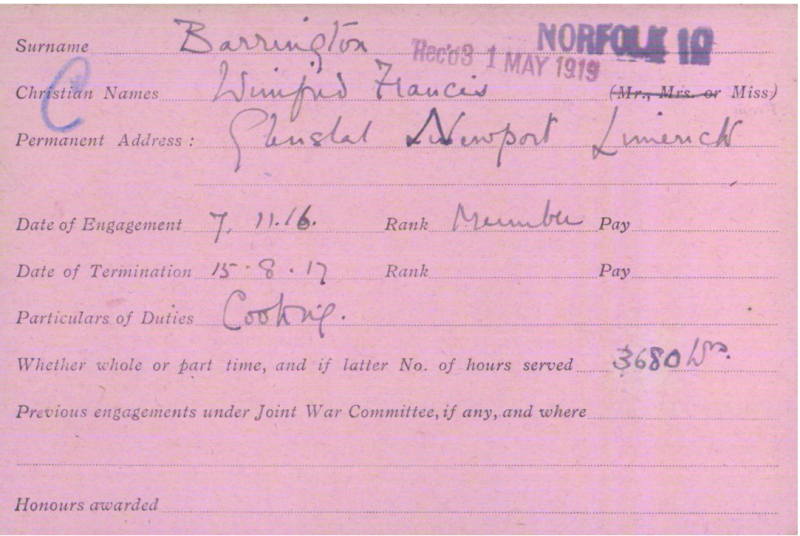 NORFOLK 10
Surname Barrington Rec'd 3 1 MAY 1919
C
Christian Names Winifred Francis (Mr., Mrs. or Miss)
Permanent Address : Glenstal Newport Limerick
Date of Engagement 7. 11.16. Rank Member Pay
Date of Termination 15-8-17 Rank Pay
Particulars of Duties Cooking.
Whether whole or part time, and if latter No. of hours served 3680 hrs.
Previous engagements under Joint War Committee, if any, and where
Honours awarded